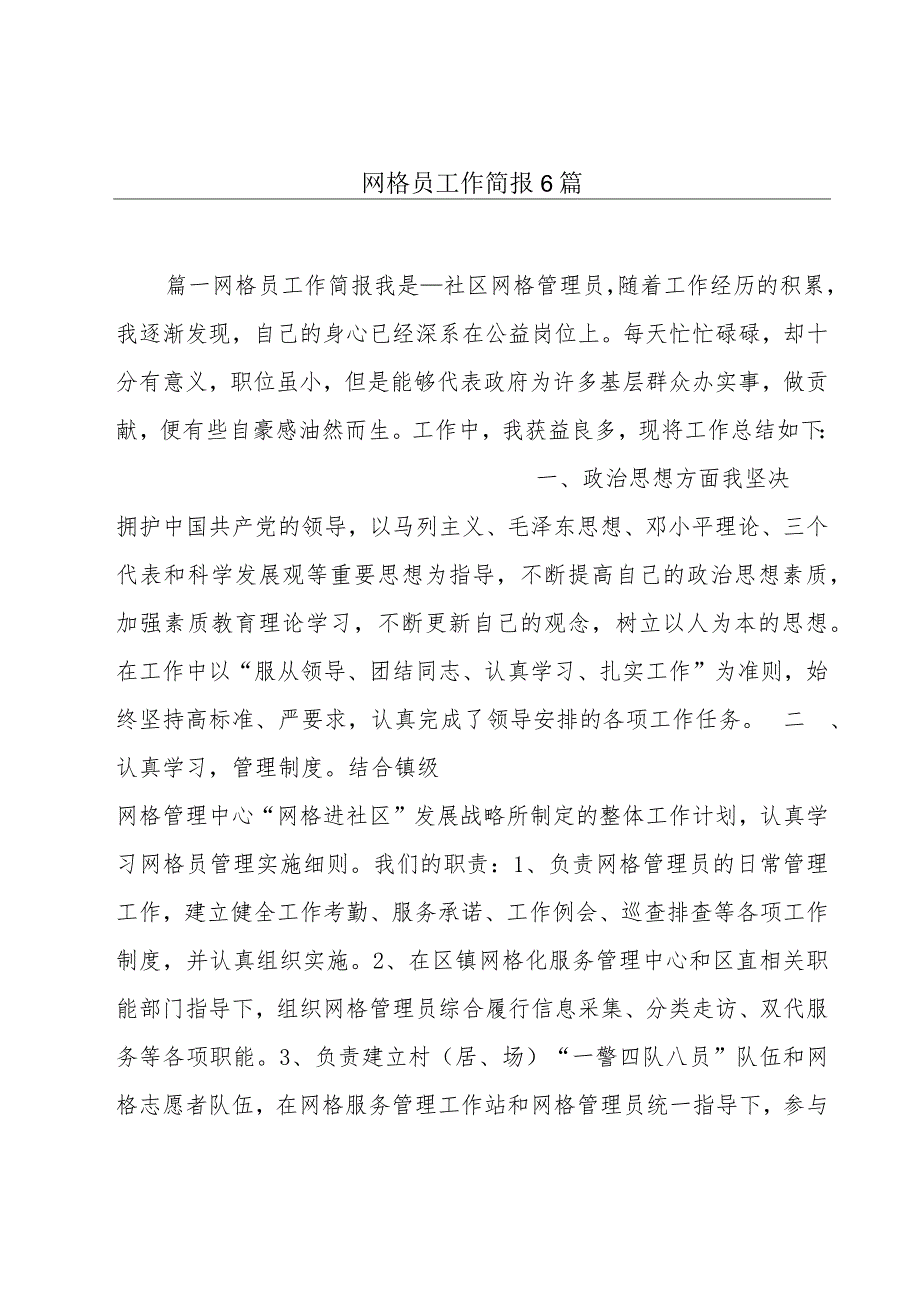 网格员工作简报6篇
篇一网格员工作简报我是—社区网格管理员，随着工作经历的积累，
我逐渐发现，自己的身心已经深系在公益岗位上。每天忙忙碌碌，却十
分有意义，职位虽小，但是能够代表政府为许多基层群众办实事，做贡
献，便有些自豪感油然而生。工作中，我获益良多，现将工作总结如下：
一、政治思想方面我坚决
拥护中国共产党的领导，以马列主义、毛泽东思想、邓小平理论、三个
代表和科学发展观等重要思想为指导，不断提高自己的政治思想素质，
加强素质教育理论学习，不断更新自己的观念，树立以人为本的思想。
在工作中以“服从领导、团结同志、认真学习、扎实工作”为准则，始
终坚持高标准、严要求，认真完成了领导安排的各项工作任务。 二 、
认真学习，管理制度。结合镇级
网格管理中心“网格进社区”发展战略所制定的整体工作计划，认真学
习网格员管理实施细则。我们的职责：1、负责网格管理员的日常管理
工作，建立健全工作考勤、服务承诺、工作例会、巡查排查等各项工作
制度，并认真组织实施。2、在区镇网格化服务管理中心和区直相关职
能部门指导下，组织网格管理员综合履行信息采集、分类走访、双代服
务等各项职能。3、负责建立村（居、场）“一警四队八员”队伍和网
格志愿者队伍，在网格服务管理工作站和网格管理员统一指导下，参与